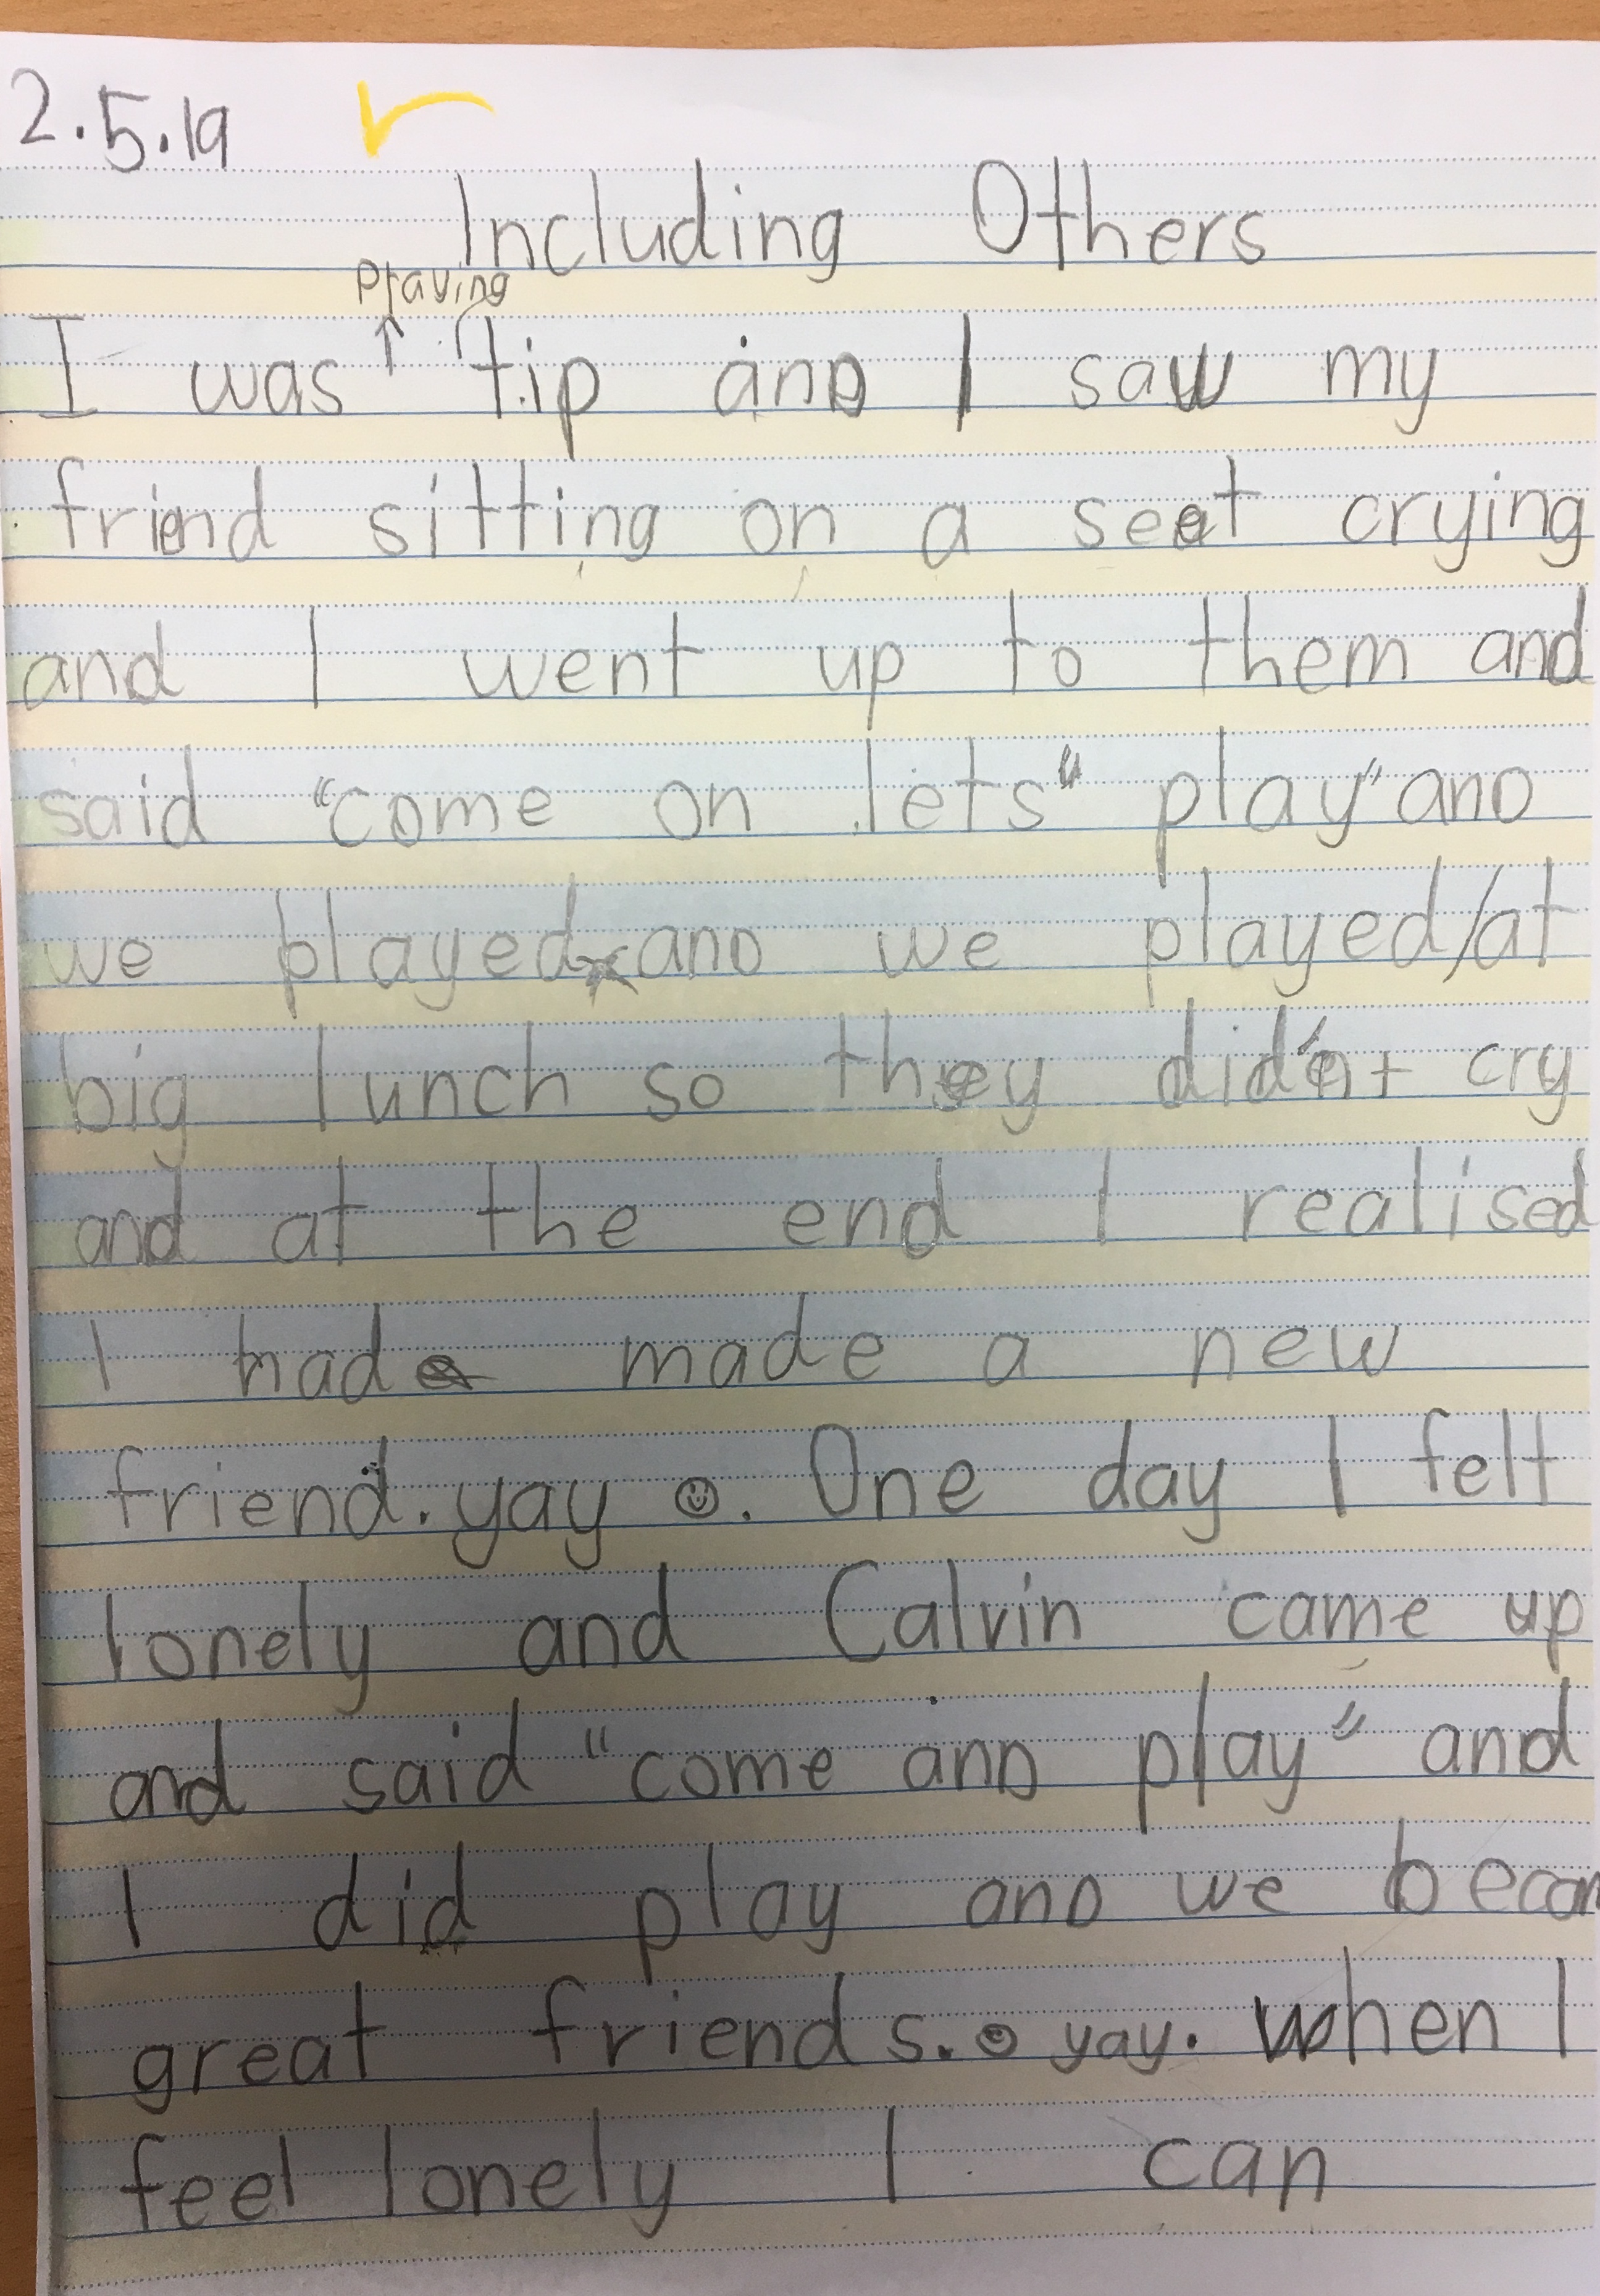 2.5.19
Including Others
playing
I was tip and I saw my
friend sitting on a seat crying
and I went up to them and
said "come on lets" play" and
we played and we played/at
big lunch so they did'nt cry
and at the end I realised
I had made a new
friend. yay ☺. One day I felt
lonely and Calvin came up
and said "come and play" and
I did play and we becam
great friends. ☺ yay. When I
feel lonely I can